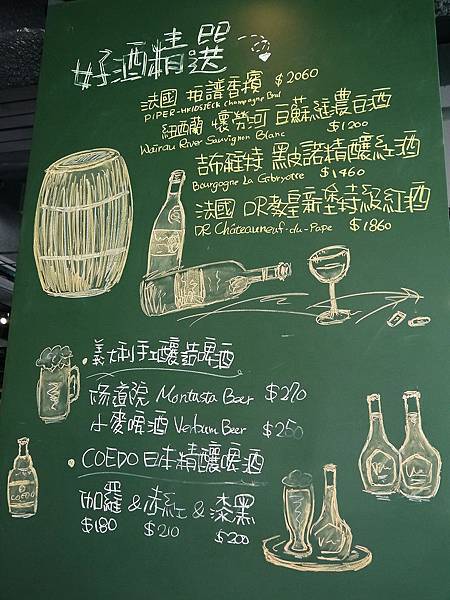 好酒精選
法國 拍譜香檳 $2060
PIPER-HEIDSIECK Champagne Brut
紐西蘭 懷勞河 白蘇維濃白酒
Wairau River Sauvignon Blanc $1200
吉布羅特 黑皮諾精釀紅酒
Bourgogne La Gibryotte $1460
法國 DR教皇新堡特級紅酒
DR Châteauneuf-du-Pape $1860
・義大利手工釀造啤酒
修道院 Montasta Beer $270
小麥啤酒 Verbum Beer $250
・COEDO 日本精釀啤酒
伽羅 & 赤紅 & 漆黑
$180 $210 $200
COEDO